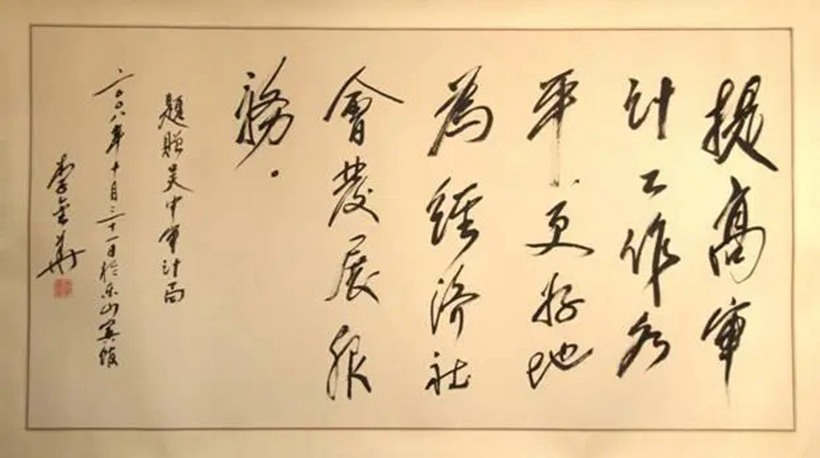 提高审
计工作水
平更好地
為經济社
會發展服
務。
題贈吴中审计局
二〇〇八年十月三十一日於东山宾馆
李金华